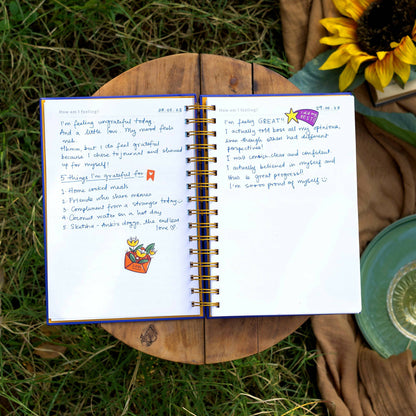 How am I feeling?
08.05.23
I'm feeling ungrateful today.
And a little low. My mood feels
meh
Hmm, but I do feel grateful
because I chose to journal and showed
up for myself!
5 things I'm grateful for
1. Home cooked meals
2. Friends who share memes
3. Compliment from a stranger today
4. Coconut water on a hot day
5. Sketchi- Anki's doggo, the endless
love
How am I feeling?
09.05.23
I'm feeling GREAT!!
I actually told boss all my opinions,
even though others had different
perspectives!
I was concise, clear and confident
I actually believed in myself and
this is great progress!!
I'm soooo proud of myself ☺